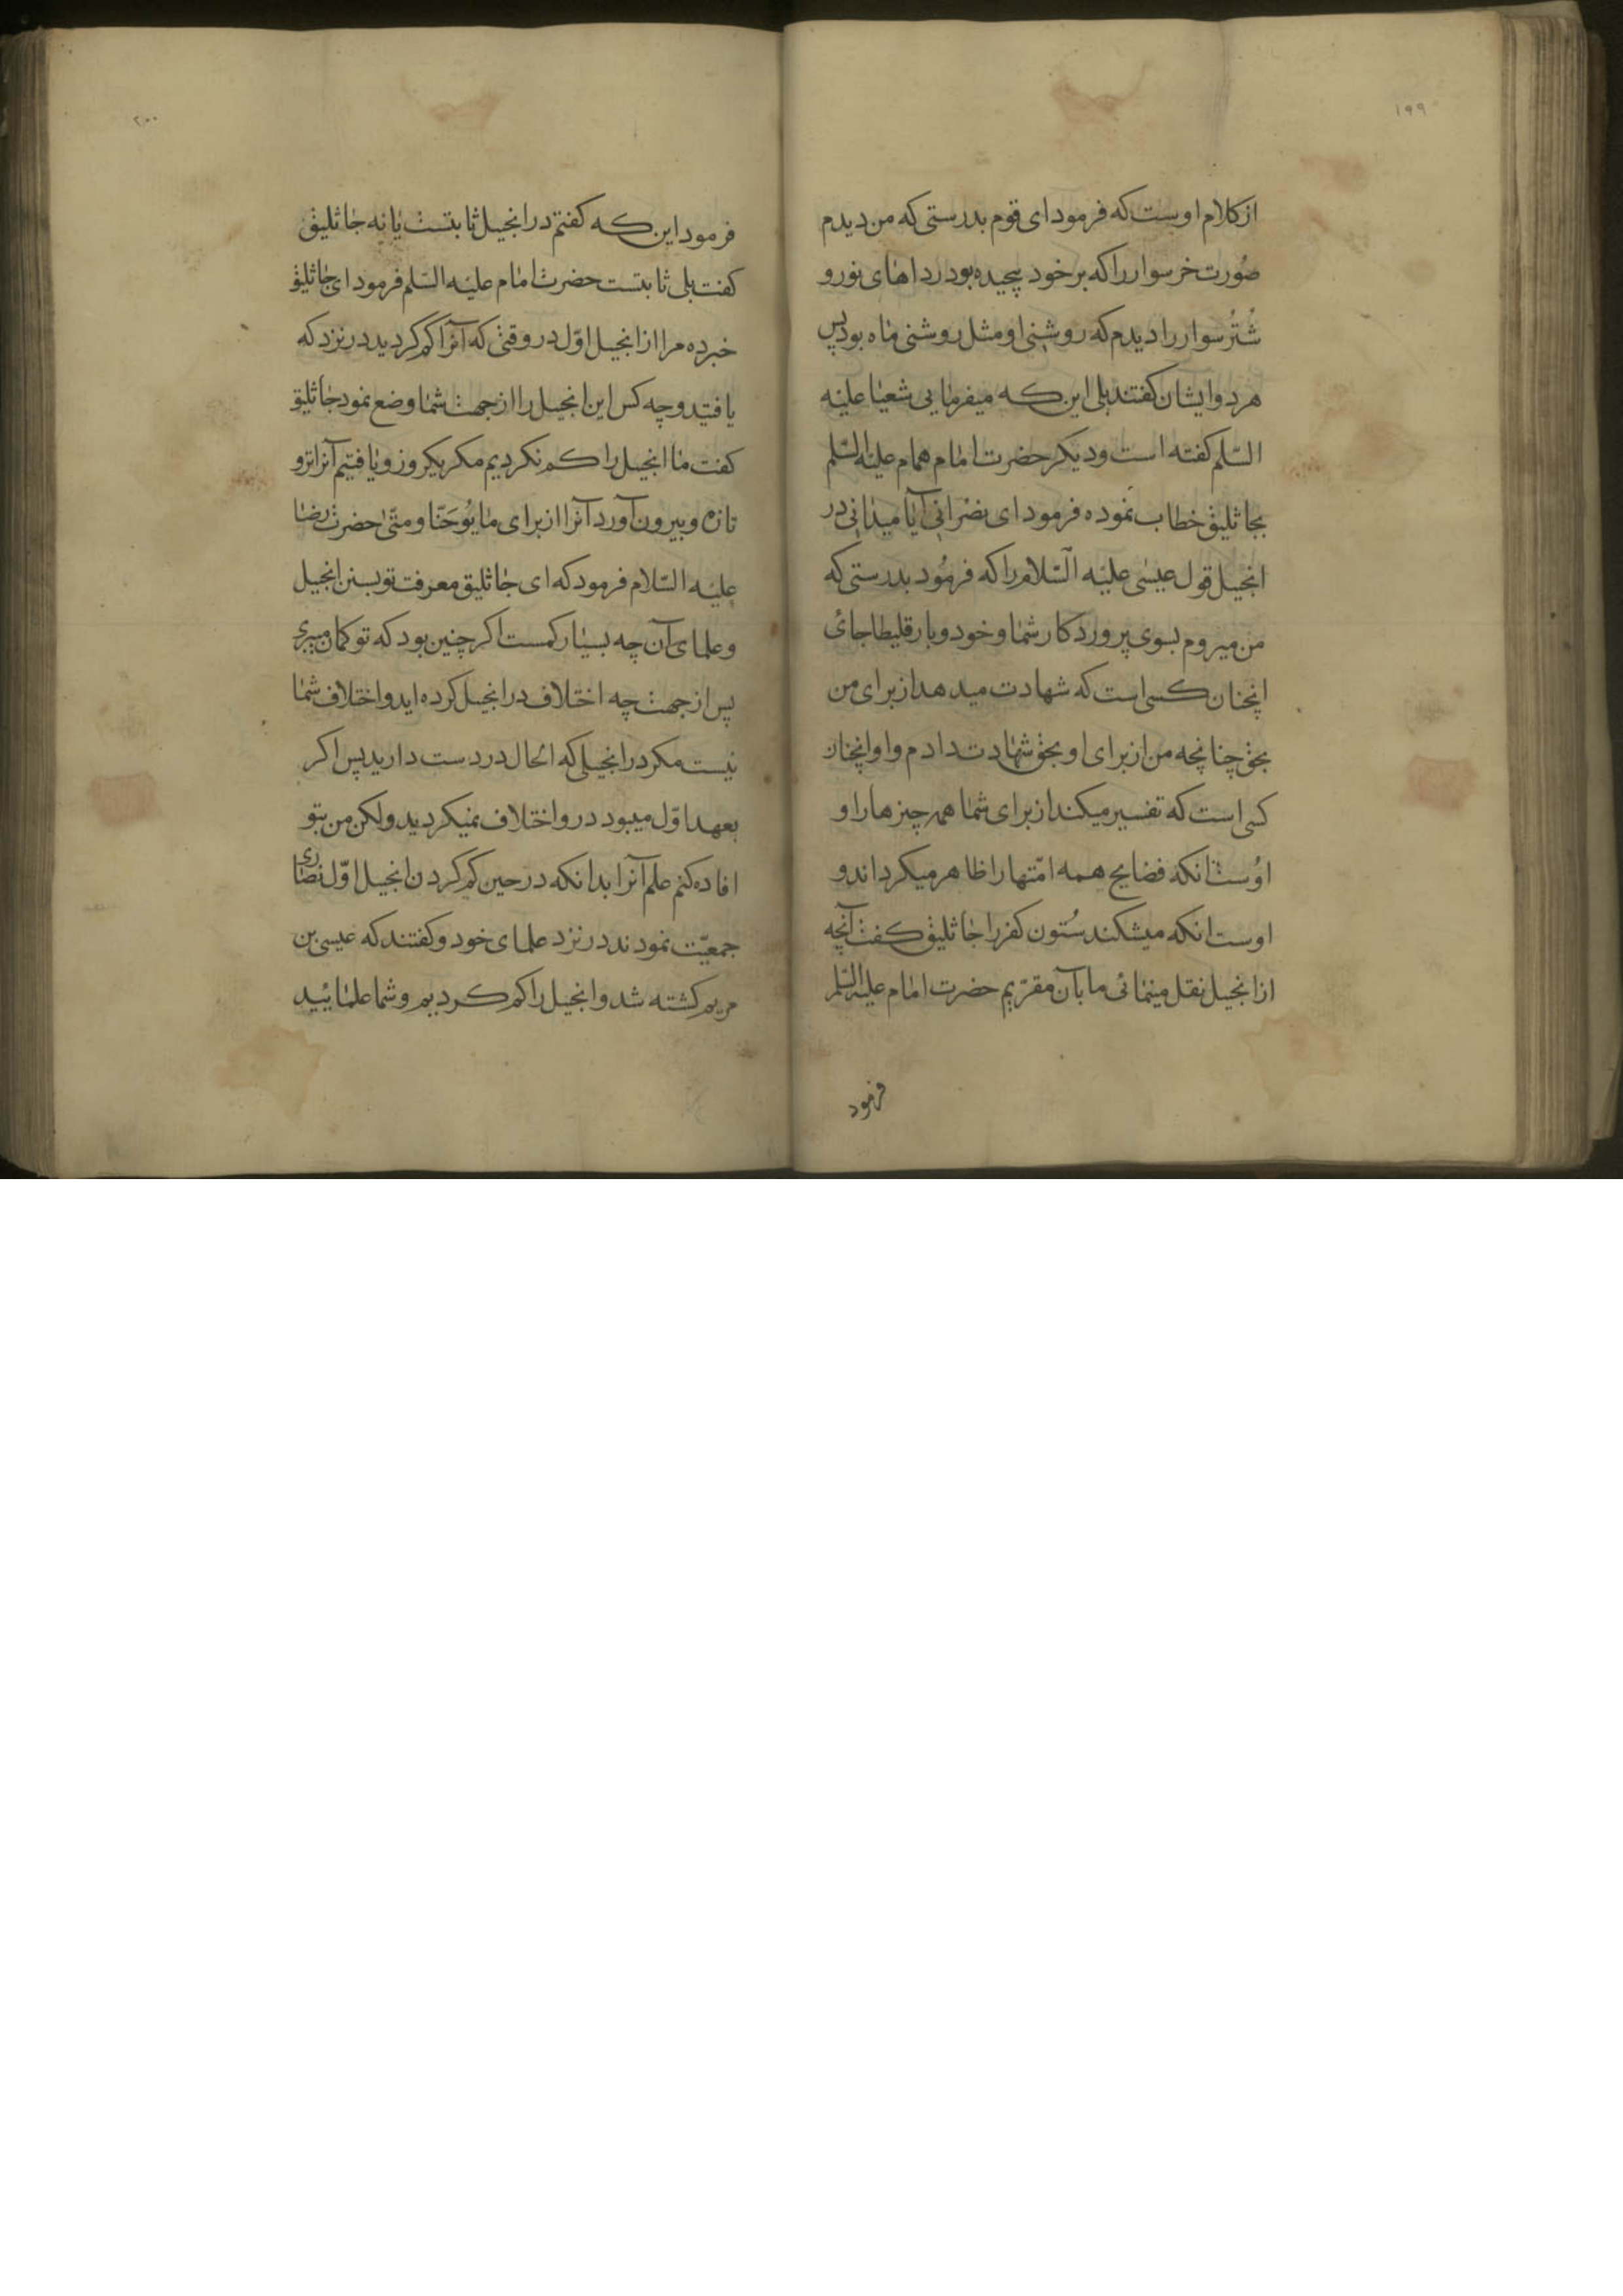 ۱۹۹
از کلام اوست که فرمود ای قوم بدرستی که من دیدم
صُورت خر سوار را که بر خود پیچیده بود رداهای نور و
شُتُر سوار را دیدم که روشنی او مثل روشنی ماه بود پس
هر دو ایشان کفتند بلی این که میفرمایی شعیا علیه
السّلم کفته است و دیکر حضرت امام همام علیه السّلم
بجاثلیق خطاب نموده فرمود ای نصرانی آیا میدانی در
انجیل قول عیسی علیه السّلام را که فرمُود بدرستی که
من میروم بسوی پروردکار شما و خود و بارقلیطا جائ
انچنان کسی است که شهادت میدهد از برای من
بحق چنانچه من از برای او بحق شهادت دادم و او انچنان
کسی است که تفسیر میکند از برای شما همه چیزها را و
اوُست انکه فضایح همه امّتها را ظاهر میکرداند و
اوست انکه میشکند سُتون کفر را جاثلیق کفت آنچه
از انجیل نقل مینمائی ما بآن مقرّیم حضرت امام علیه السّلم
فرمود
۲۰۰
فرمود این که کفتم در انجیل ثابتست یا نه جاثلیق
کفت بلی ثابتست حضرت امام علیه السّلم فرمود ای جاثلیق
خبر ده مرا از انجیل اوّل در وقتی که آنرا کم کردید در نزد که
یافتید و چه کس این انجیل را از جهت شما وضع نمود جاثلیق
کفت ما انجیل را کم نکردیم مکر یکروز و یافتیم آنرا تر و
تازه و بیرون آورد آنرا از برای ما یُوحَنّا و متّی حضرت رضا
علیه السّلام فرمود که ای جاثلیق معرفت تو بسنن انجیل
و علمای آن چه بسیار کمست اکر چنین بود که تو کمان میبری
پس از جهت چه اختلاف در انجیل کرده اید و اختلاف شما
نیست مکر در انجیلی که الحال در دست دارید پس اکر
بعهد اوّل میبود در و اختلاف نمیکردید ولکن من بتو
افاده کنم علم آنرا بدانکه در حین کم کردن انجیل اوّل نصاری
جمعیّت نمودند در نزد علمای خود و کفتند که عیسی بن
مریم کشته شد و انجیل را کم کردیم و شما علمائید